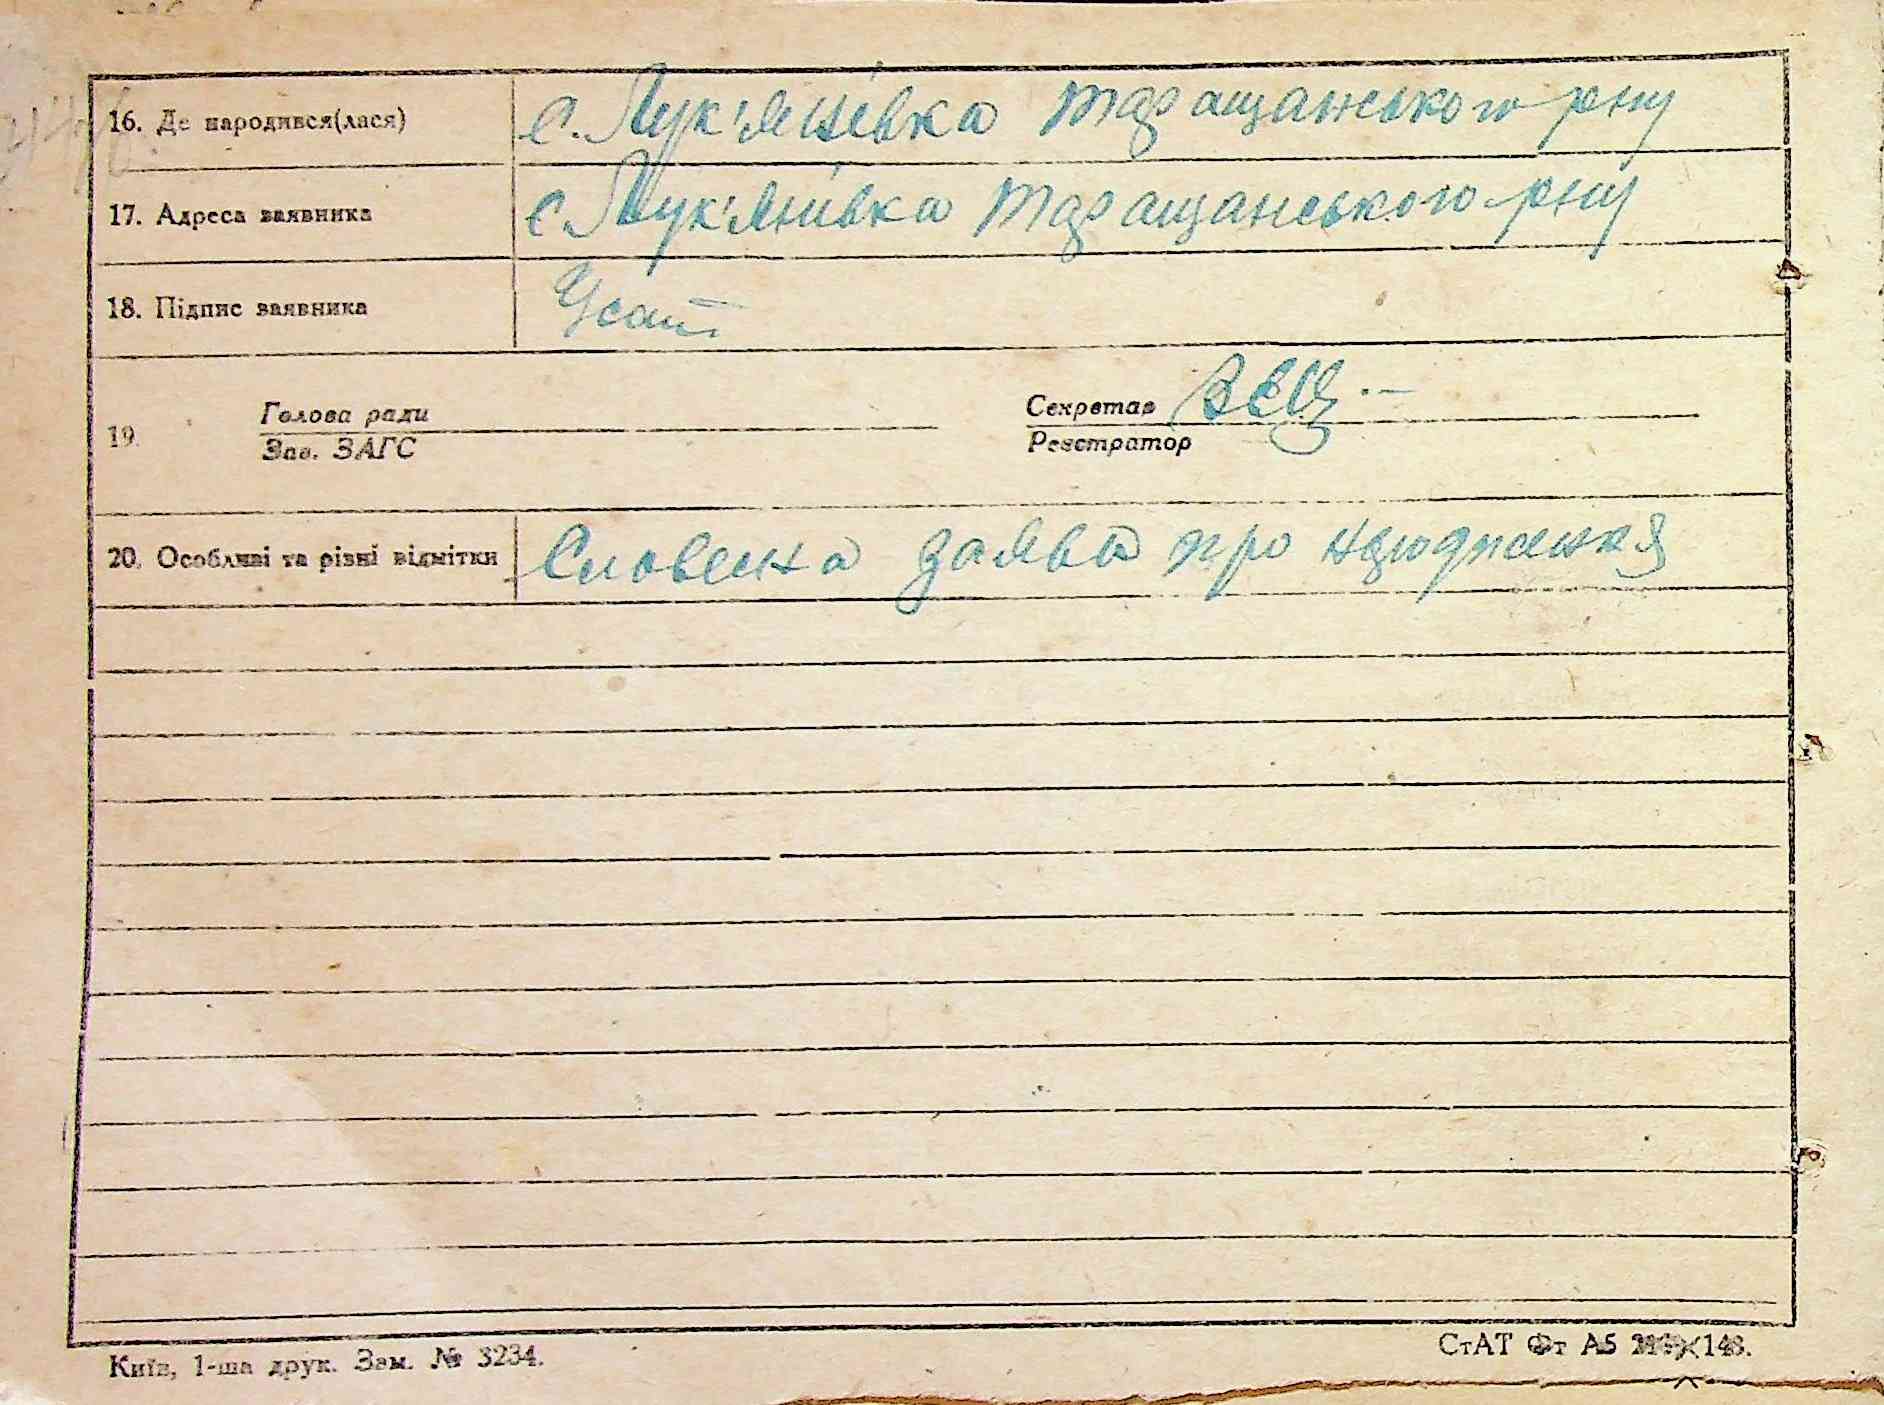 16. Де народився(лася) с. Лук'янівка Таращанського р-ну
17. Адреса заявника с. Лук'янівка Таращанського р-ну
18. Підпис заявника Усат
19. Голова ради Секретар
Зав. ЗАГС Реєстратор
20. Особливі та різні відмітки Словесна заява про народження
Київ, 1-ша друк. Зам. № 3234. СтАТ Фт А5 148.